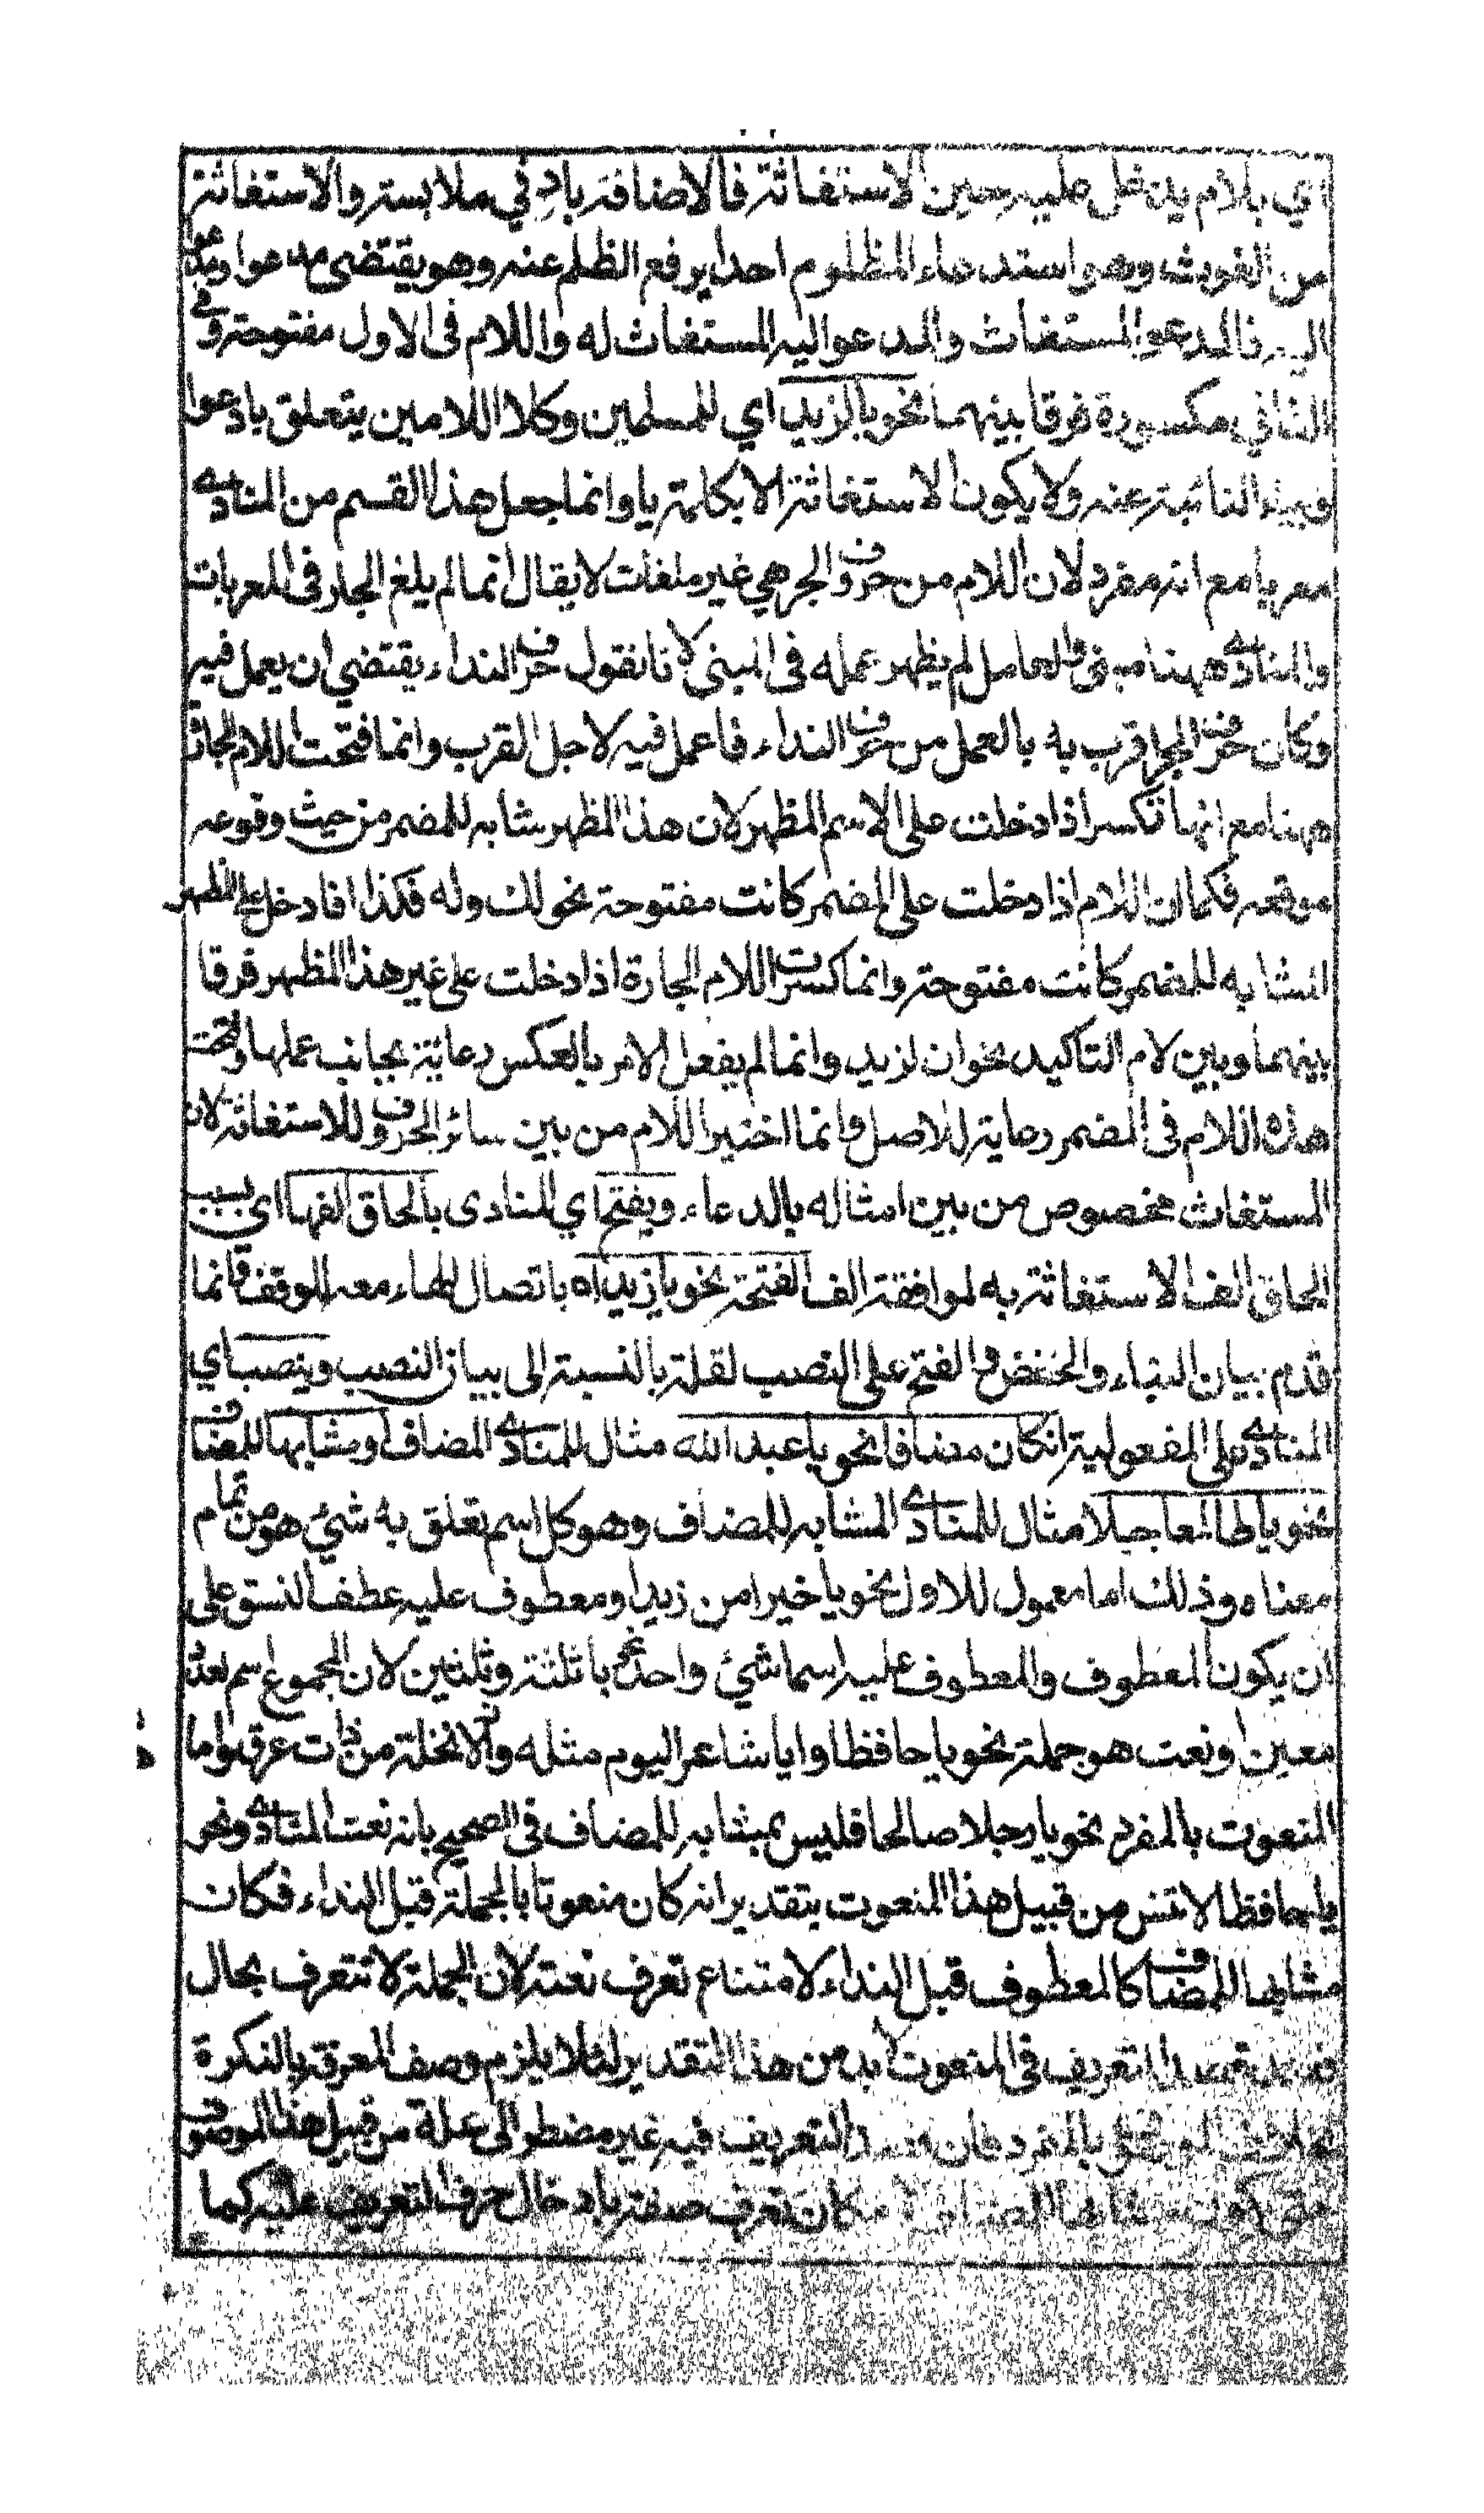 اي بلام يدخل عليه حين الاستغاثة فالاضافة بادنى ملابسة والاستغاثة
من الغوث وهو استدعاء المظلوم احدا يرفع الظلم عنه وهو يقتضى مدعوا ومدعوا
اليه فالمدعو المستغاث والمدعو اليه المستغاث له واللام فى الاول مفتوحة وفى
الثاني مكسورة فرقا بينهما نحو يا لزيد اي للمسلمين وكلا اللامين يتعلق بادعوا
وبياء النائبة عنه ولا يكون الاستغاثة الا بكلمة يا وانما جعل هذا القسم من المنادى
معربا مع انه مفرد لان اللام من حروف الجر هي غير ملغات لا يقال انما لم يلغ الجار فى المعربات
والمنادى ههنا مبنى والعامل لم يظهر عمله فى المبنى لانا نقول حرف النداء يقتضي ان يعمل فيه
وكان حرف الجر اقرب به بالعمل من حرف النداء فاعمل فيه لاجل القرب وانما فتحت اللام الجارة
ههنا مع انها تكسر اذا دخلت على الاسم المظهر لان هذا المظهر مشابه للمضمر من حيث وقوعه
موقعه فكما ان اللام اذا دخلت على المضمر كانت مفتوحة نحو لك وله فكذا اذا دخل على المظهر
المشابه للمضمر كانت مفتوحة وانما كسرت اللام الجارة اذا دخلت على غير هذا المظهر فرقا
بينهما وبين لام التاكيد نحو ان لزيد وانما لم يفعل الامر بالعكس رعاية بجانب عملها وفتحت
هذه اللام فى المضمر رعاية للاصل وانما اختير اللام من بين سائر الحروف للاستغاثة لان
المستغاث مخصوص من بين امثاله بالدعاء ويفتح اي المنادى بالحاق الفها اى بسبب
الحاق الف الاستغاثة به لموافقة الف الفتحة نحو يا زيداه باتصال الهاء معه للوقف وانما
قدم بيان البناء والخفض والفتح على النصب لقلة بالنسبة الى بيان النصب وينصب اي
المنادى على المفعولية ان كان مضافا نحو يا عبد الله مثال للمنادى المضاف او مشابها للمضاف
نحو يا طالعا جبلا مثال للمنادى المشابه للمضاف وهو كل اسم تعلق به شئ هو من تمام
معناه وذلك اما معمول للاول نحو يا خيرا من زيد او معطوف عليه عطف النسق على
ان يكون المعطوف والمعطوف عليه اسما شئ واحد نحو يا ثلثة وثلثين لان المجموع اسم لعدد
معين او نعت هو جملة نحو يا حافظا وايا شاعرا اليوم مثله والا نخلة من ذات عرق واما
المنعوت بالمفرد نحو يا رجلا صالحا فليس بمشابه للمضاف فى الصحيح بانه نعت المنادى ونحو
يا حافظا لا تنس من قبيل هذا المنعوت بتقدير انه كان منعوتا بالجملة قبل النداء فكان
مشابها للمضاف كالمعطوف قبل النداء لامتناع تعرف نعته لان الجملة لا تتعرف بحال
قصد التعريف فى المنعوت لا بد من هذا التقدير لئلا يلزم وصف المعرفة بالنكرة
بالمفرد فان قصد التعريف فيه غير مضطر الى عله من قبيل هذا الموصوف
كان تعرف صفته بادخال حرف التعريف عليه كما